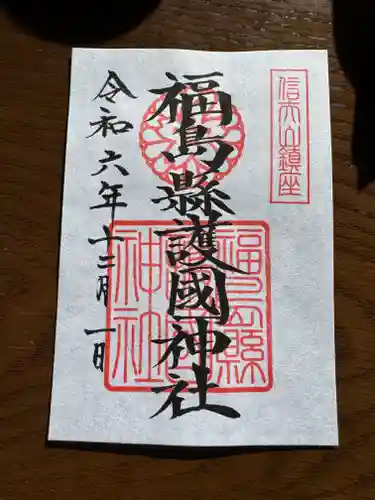 信夫山鎮座
福島縣護國神社
福島縣
護國
神社
令和六年十二月一日